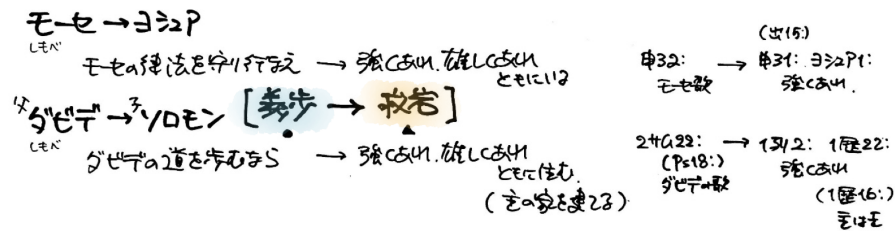 モーセ → ヨシュア
しもべ
モーセの律法を守り行なえ → 強くあれ.雄々しくあれ
ともにいる
父 ダビデ → 子 ソロモン [義歩 → 救岩]
しもべ
ダビデの道を歩むなら → 強くあれ.雄々しくあれ
ともに住む.
(主の家を建てる)
(出15:)
申32: → 申31: ヨシュア1:
モーセ歌 強くあれ.
2サム22: → 1列2: 1歴22:
(Ps18:) 強くあれ
ダビデの歌 (1歴16:)
主は王